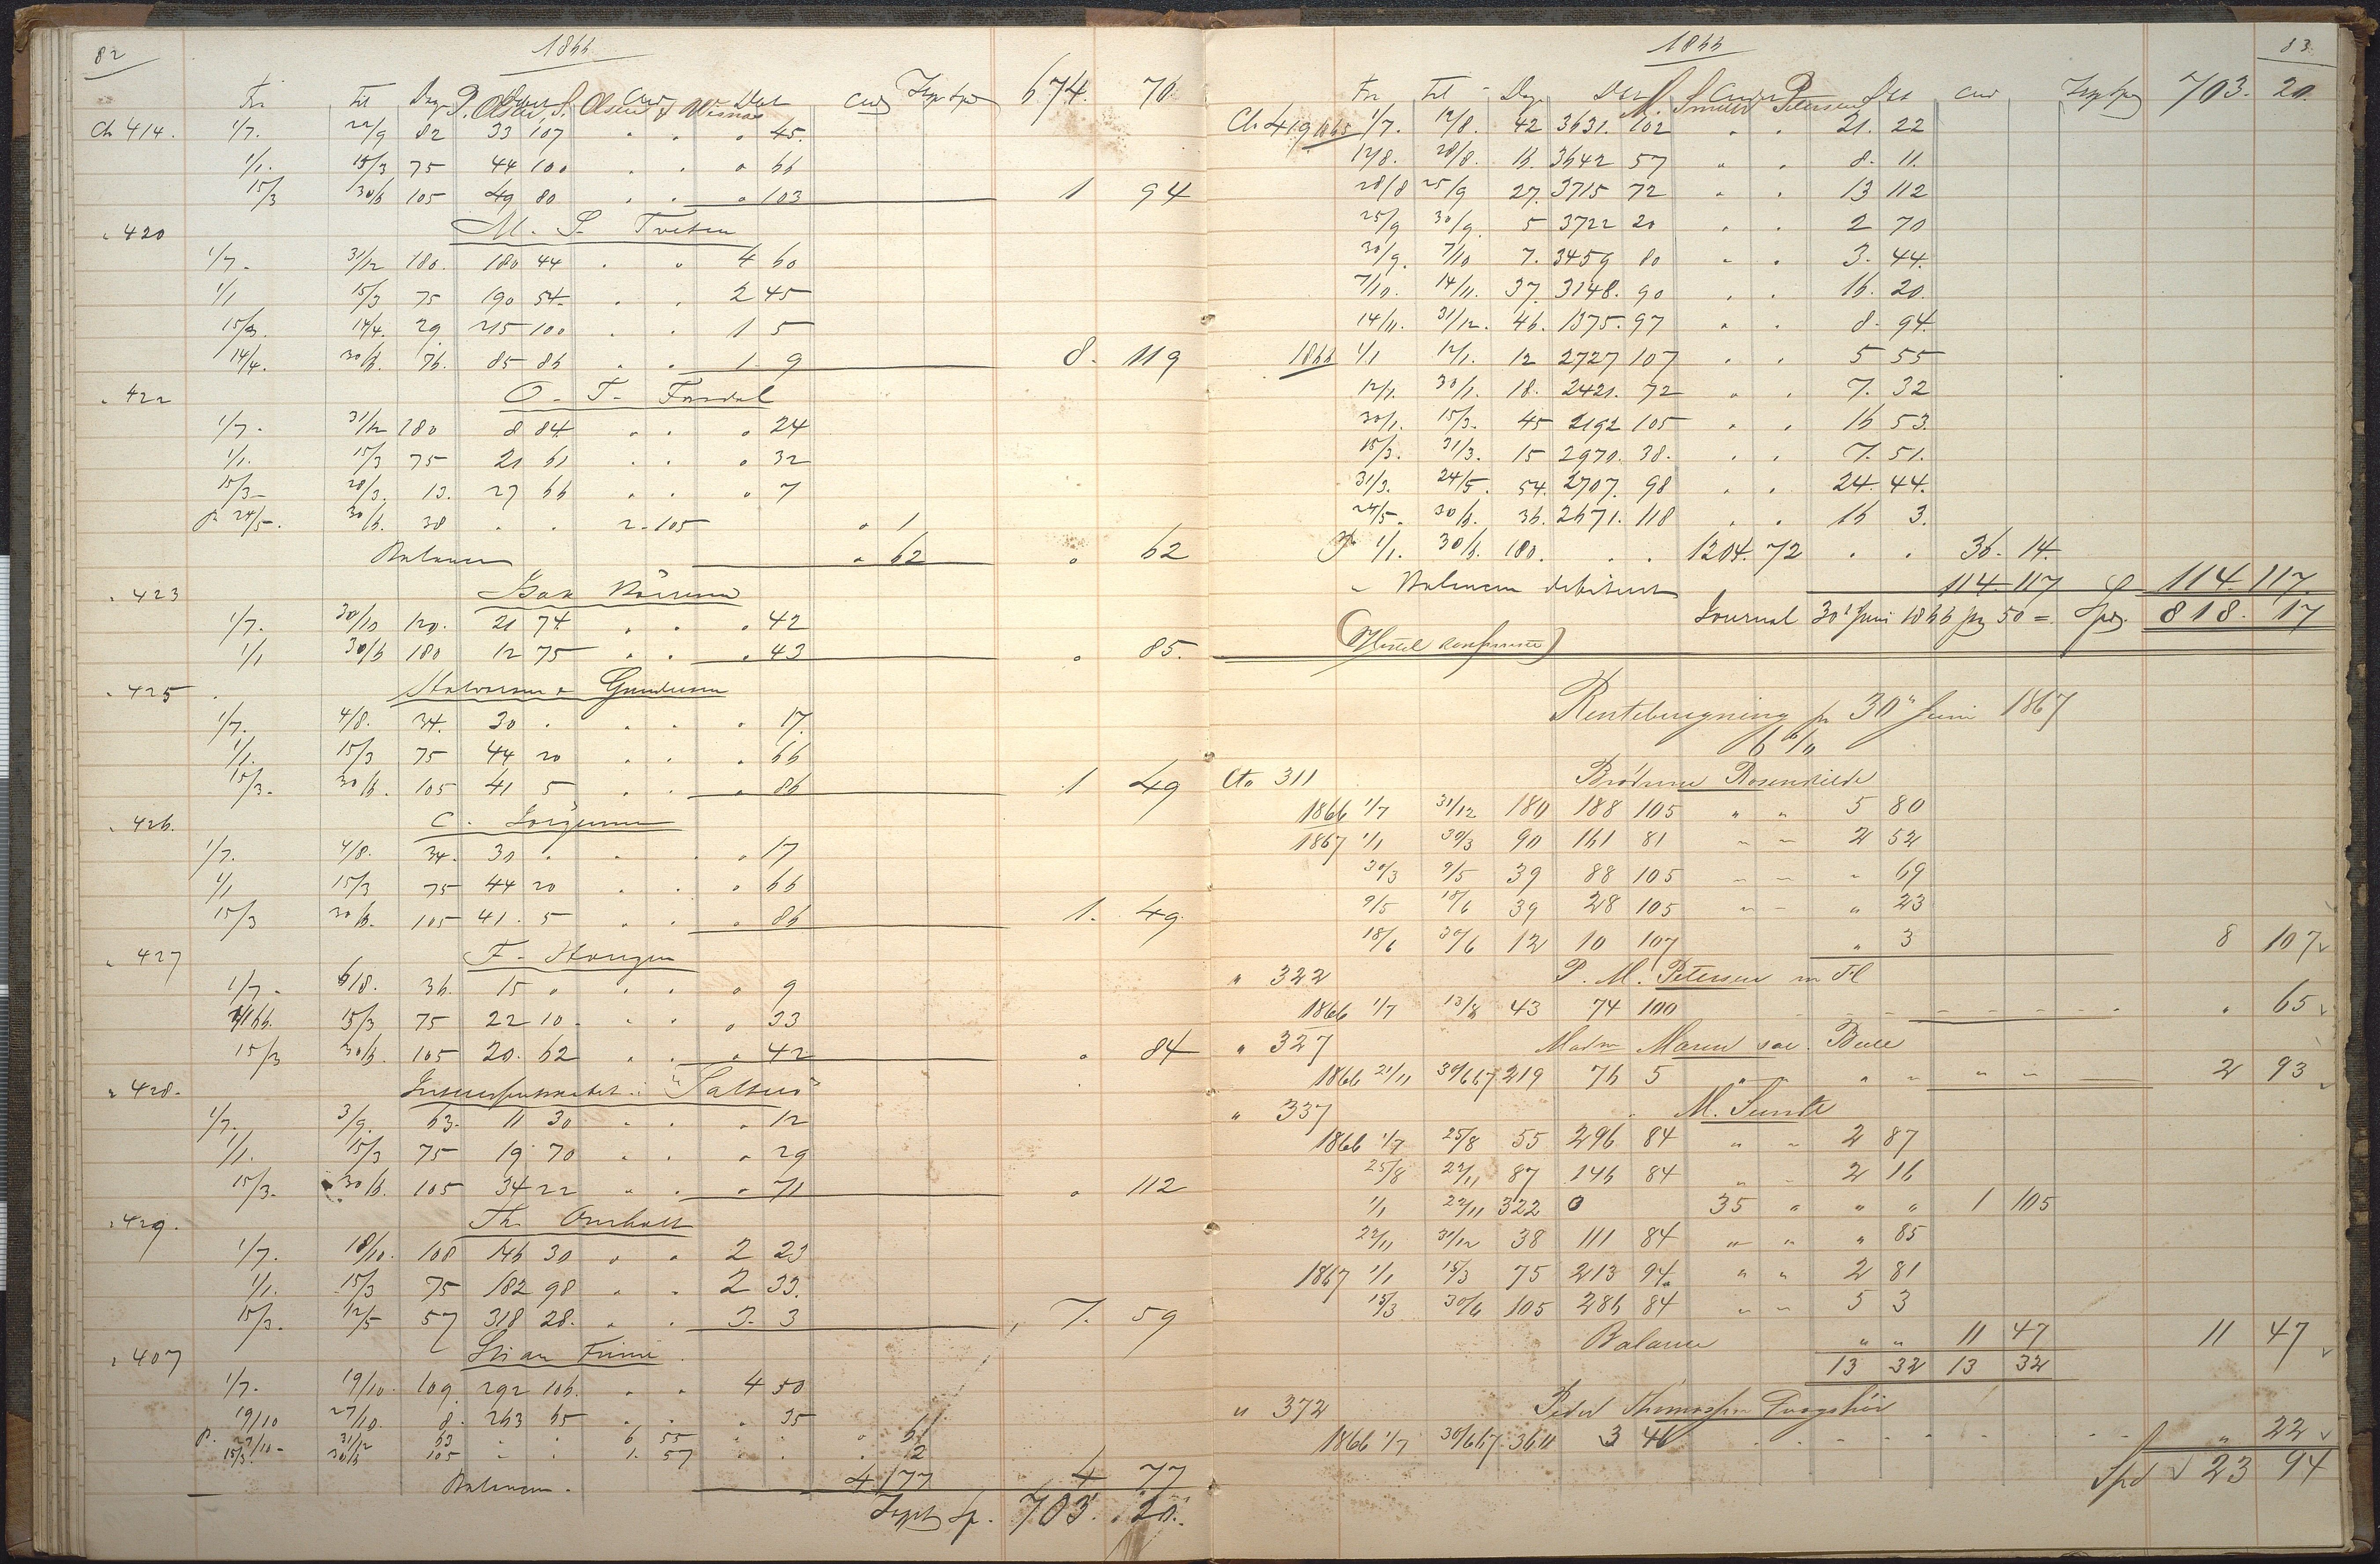 82
1866
Fra Til Dage Debet Cred Debet Cred Transp Spd 674. 70
P. Olsen, S. Olsen & Wisnæs
Ch 414. 1/7. 22/9 82 33 107 " " " 45.
1/1. 15/3 75 44 100 . . " 66
15/3 30/6 105 49 80 . . " 103 1 94
" 420 M. S. Tveten
1/7. 31/12 180. 180 44 . " 4 60
1/1 15/3 75 190 54 . . 2 45
15/3. 14/4. 29. 215 100 . . 1 5
14/4. 30/6. 76. 85 86 . . 1. 9 8. 119
" 422 O. T.
1/7. 31/12 180 8 84 . . " 24
1/1. 15/3 75 21 61 . . " 32
15/3 28/3. 13. 27 66 . . " 7
24/5. 30/6. 38 . . 2. 105 " 1
Balancen " 62 " 62
" 423
1/7. 30/10 120. 21 74 . . " 42
1/1 30/6 180 12 75 . . " 43 " 85.
" 425 Gundersen
1/7. 4/8. 34. 30 . . . " 17.
1/1. 15/3 75 44 20 . . . 66
15/3. 30/6. 105 41 5 . . " 86 1 49
" 426. C. Jörgensen
1/7. 4/8. 34. 30 " . . " 17
1/1 15/3 75 44 20 . . " 66
15/3 30/6. 105 41. 5 . . " 86 1. 49.
" 427 F.
1/7. 6/8. 36. 15 " . . " 9
1/1 66. 15/3 75 22 10 . . " 33
15/3 30/6. 105 20. 62 . . " 42 " 84
" 428. Interessentskabet i "Saltus"
1/7. 3/9. 63. 11 30 . . " 12
1/1. 15/3 75 19 70 . . " 29
15/3. 30/6. 105 34 22 " . " 71 " 112
" 429. Th. Omholt
1/7. 18/10. 108 146 30 " " 2 23
1/1. 15/3 75 182 98 " . 2 33.
15/3. 12/5 57 318 28. . . 3. 3 7. 59
" 407
1/7. 19/10. 109. 292 106. . . 4 50
19/10 27/10. 8. 263 65 . . " 35
27/10 31/12 63 . . 6 55 . . " 6
15/3. 30/6 105 . . 1. 57 . . . 2
Balancen. 4 77 4 77
Transpt Sp. 703. 20.
1866 83.
Fra Til Dage Debet Credit Debet Cred Transp Spd 703. 20.
N. Smith Petersen
Ch 419 1865 1/7. 12/8. 42 3631. 102 " . 21. 22
12/8. 28/8. 16. 3642 57 " . 8. 11.
28/8 25/9 27. 3715 72 " . 13 112
25/9 30/9. 5 3722 20 . . 2 70
30/9. 7/10 7. 3459 80 " . 3. 44.
7/10. 14/11. 37. 3148. 90 . . 16. 20.
14/11. 31/12. 46. 1375. 97 " . 8. 94.
1866 1/1 12/1. 12 2727 107 . . 5 55
12/1. 30/1. 18. 2421. 72 " . 7. 32
30/1. 15/3. 45 2192 105 . . 16 53.
15/3. 31/3. 15 2970. 38. . . 7. 51.
31/3. 24/5. 54. 2707. 98 . . 24. 44.
24/5. 30/6. 36. 2671. 118 . . 16 3.
1/1. 30/6. 180. . . 1204. 72 . . 36. 14.
Balancen debiteret 114. 117 114. 117.
Journal 30t Juni 1866 pg 50 = Spd. 818. 17
Renteberegning pr 30" Juni 1867
6 %
Cto 311 Brödrene Rosenkilde
1866 1/7 31/12 180 188 105 " " 5 80
1867 1/1 30/3 90 161 81 " " 2 52
30/3 9/5 39 88 105 " " " 69
9/5 18/6 39 28 105 " " " 23
18/6 30/6 12 10 107 " 3 8 107
" 322 P. M. Petersen
1866 1/7 13/8 43 74 100 " 65
" 327 Madm Maren
1866 21/11 30/6 67 219 76 5 " " " " " " 2 93
" 337 M. Sunde
1866 1/7 25/8 55 296 84 " " 2 87
25/8 22/11 87 146 84 " " 2 16
1/1 22/11 322 0 35 " " " 1 105
22/11 31/12 38 111 84 " " " 85
1867 1/1 15/3 75 213 94 " " 2 81
15/3 30/6 105 286 84 " " 5 3
Balance " " 11 47 11 47
13 32 13 32
" 372 Peder
1866 1/7 30/6 67. 360 3 46 " 22
Spd 23 94